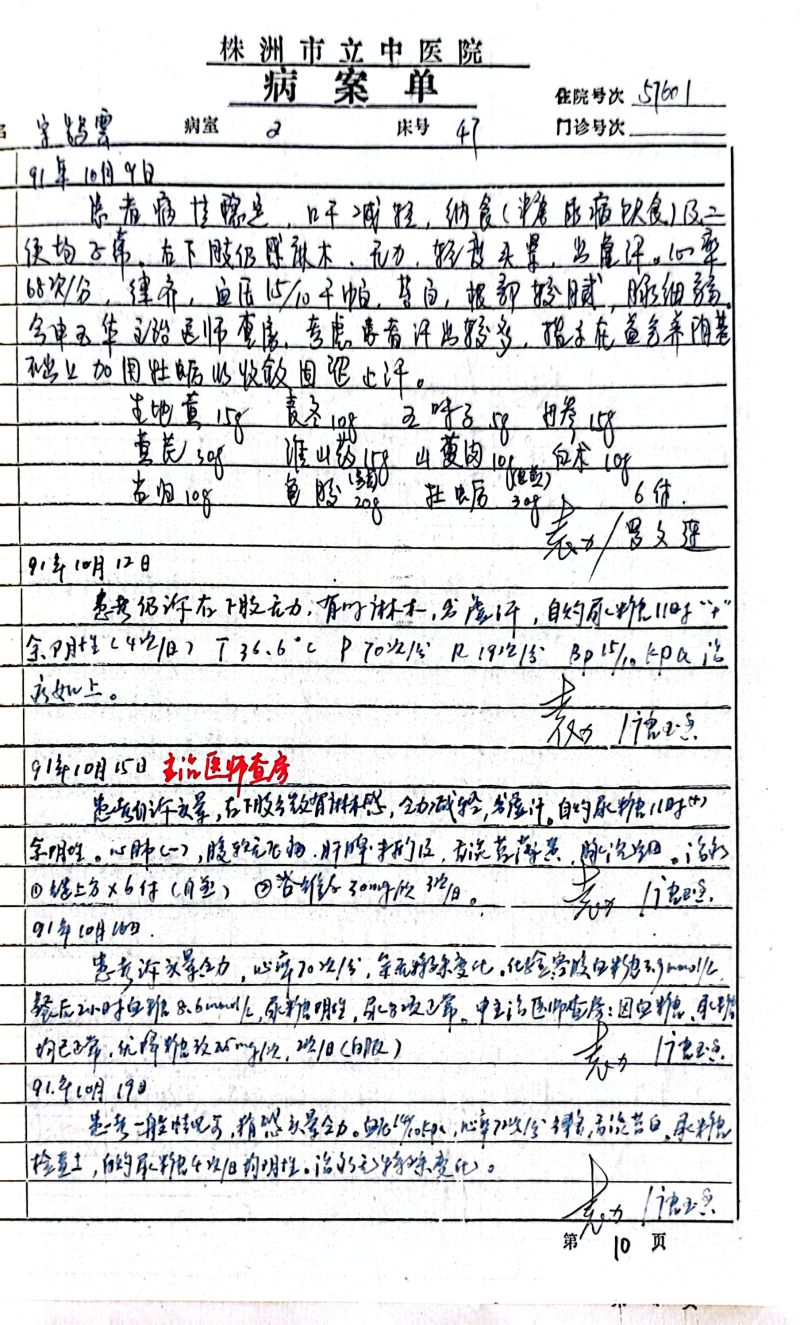 株洲市立中医院
病案单
住院号次 57601
名 病室 2 床号 47 门诊号次
91年10月9日
患者病情稳定，口干减轻，纳食（糖尿病饮食）及二
便均正常，右下肢仍感麻木、无力，轻度头晕，出虚汗。心率
68次/分，律齐，血压15/10千帕，苔白，根部较腻，脉细弱。
今申玉华主治医师查房，考虑患者汗出较多，指示在益气养阴基
础上加用牡蛎以收敛固涩止汗。
生地黄15g 麦冬10g 五味子5g 丹参15g
黄芪30g 淮山药15g 山萸肉10g 白术10g
当归10g 龟胶20g 牡蛎30g 6付.
袁力/
91年10月12日
患者仍诉右下肢无力，有时麻木，出虚汗，自约尿糖11时"+"
余阴性（4次/日） T 36.6°C P 70次/分 R 19次/分 Bp 15/10 kpa 治
疗如上。
袁力/
91年10月15日 主治医师查房
患者自诉头晕，右下肢有麻木感，乏力减轻，出虚汗。自约尿糖11时(+)
余阴性。心肺(-)，腹软无压痛，肝脾未扪及，舌淡苔薄黄，脉沉细。治疗
①继上方×6付 ② 30mg/次 3次/日。
袁力/
91年10月16日.
患者诉头晕乏力，心率70次/分，余无特殊变化。化验空腹血糖3.9mmol/L
餐后2小时血糖8.6mmol/L，尿糖阴性，尿8项正常。申主治医师查房：因血糖、尿糖
均已正常，优降糖改2.5mg/次，2次/日（自服）
袁力/
91.年10月19日
患者一般情况可，稍感头晕乏力。心率72次/分 律齐，舌淡苔白。尿糖
检查±，自约尿糖4次/日均阴性。治疗无特殊变化。
袁力/
第 10 页